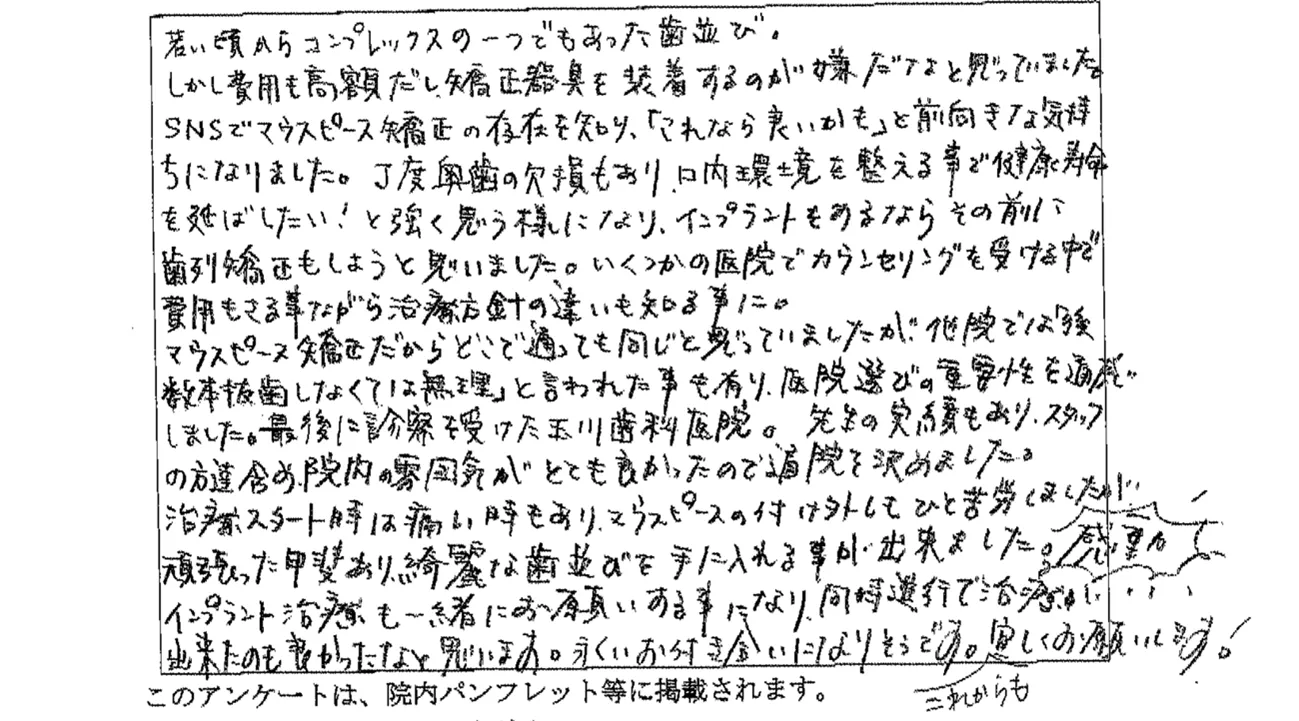 若い頃からコンプレックスの一つでもあった歯並び。
しかし費用も高額だし、矯正器具を装着するのが嫌だなと思っていました。
SNSでマウスピース矯正の存在を知り、「これなら良いかも」と前向きな気持
ちになりました。丁度奥歯の欠損もあり、口内環境を整える事で健康寿命
を延ばしたい！と強く思う様になり、インプラントをするならその前に
歯列矯正もしようと思いました。いくつかの医院でカウンセリングを受ける中で
費用もさる事ながら治療方針の違いも知る事に。
マウスピース矯正だからどこで通っても同じと思っていましたが、他院では「後
数本抜歯しなくては無理」と言われた事も有り、医院選びの重要性を痛感
しました。最後に診察を受けた玉川歯科医院。先生の実績もあり、スタッフ
の方達含め、院内の雰囲気がとても良かったので通院を決めました。
治療スタート時は痛い時もあり、マウスピースの付け外しもひと苦労しましたが、
頑張った甲斐あり、綺麗な歯並びを手に入れる事が出来ました。感謝
インプラント治療も一緒にお願いする事になり、同時進行で治療が
出来たのも良かったなと思います。永いお付き合いになりそうです。宜しくお願いします！
これからも
このアンケートは、院内パンフレット等に掲載されます。